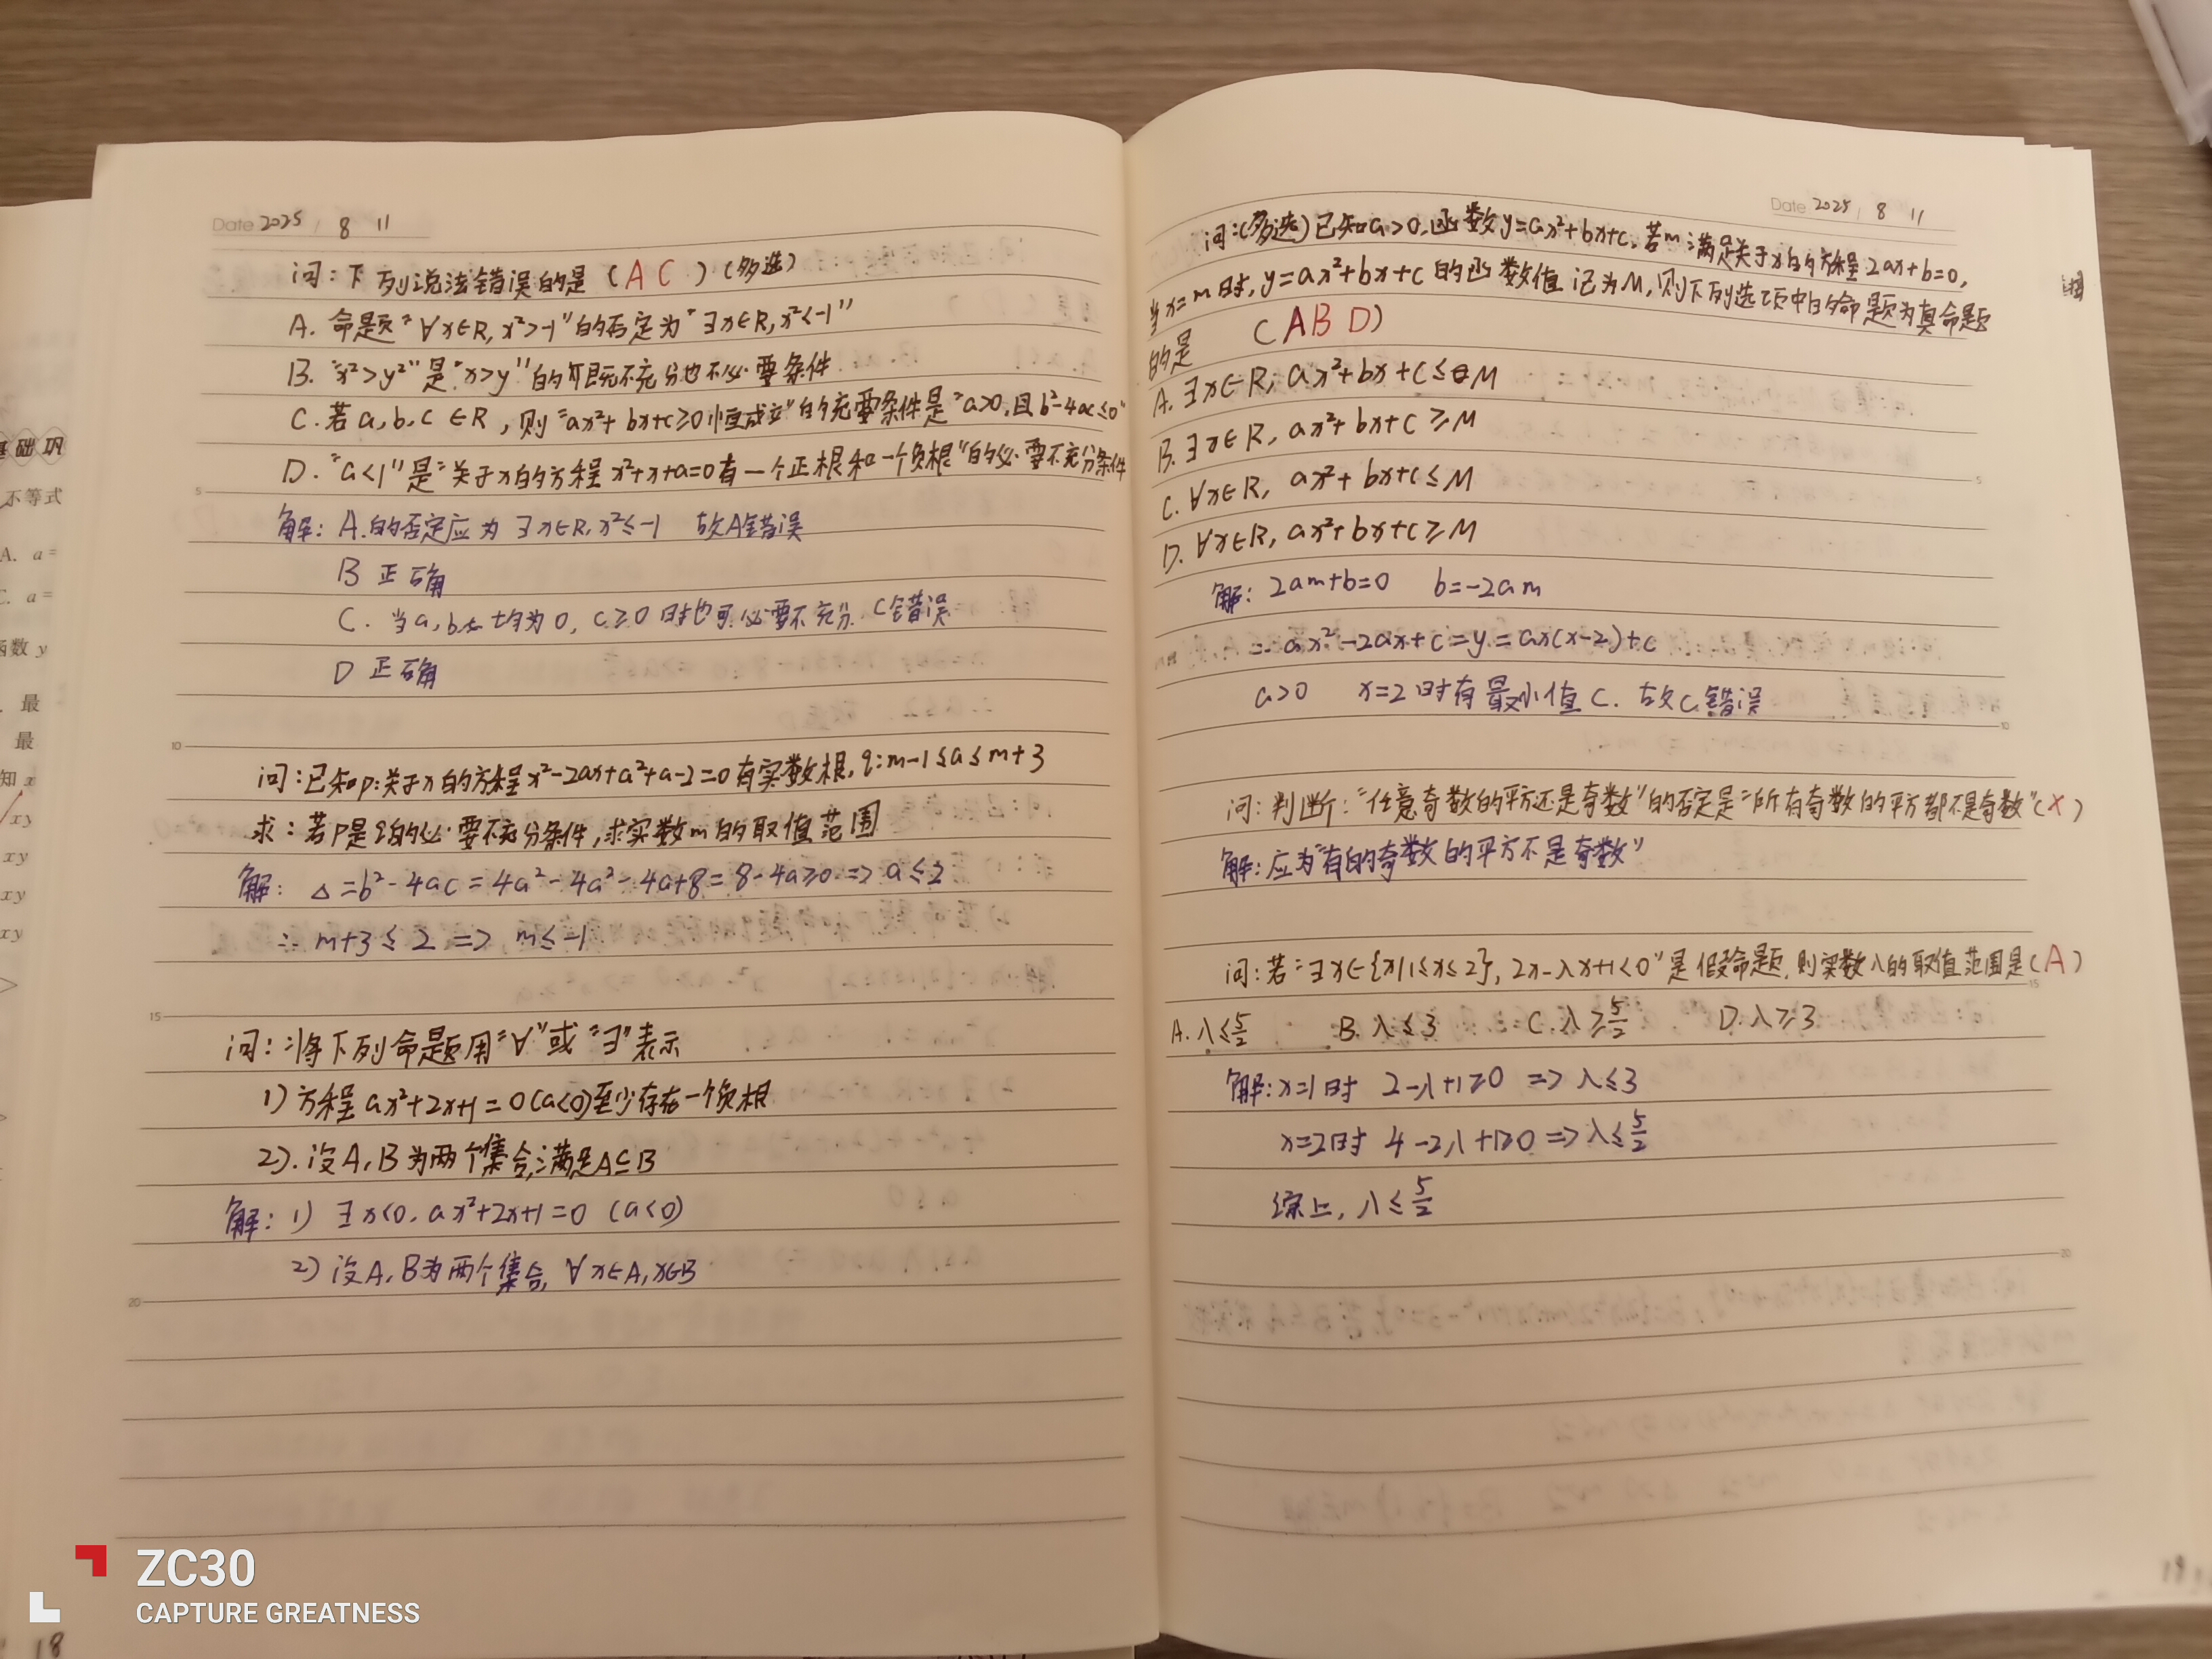 Date 2025 / 8 11
问:下列说法错误的是 (AC) (多选)
A. 命题"∀x∈R, x²>-1"的否定为"∃x∈R, x²<-1"
B. "x²>y²"是"x>y"的既不充分也不必要条件
C. 若a,b,c∈R, 则"ax²+bx+c≥0恒成立"的充要条件是"a>0,且b²-4ac≤0"
D. "a<1"是"关于x的方程x²+x+a=0有一个正根和一个负根"的必要不充分条件
解: A.的否定应为 ∃x∈R, x²≤-1 故A错误
B 正确
C. 当a,b均为0, c≥0时也可.必要不充分. C错误
D 正确
问:已知p:关于x的方程x²-2ax+a²+a-2=0有实数根, q:m-1≤a≤m+3
求:若p是q的必要不充分条件,求实数m的取值范围
解: △=b²-4ac=4a²-4a²-4a+8=8-4a≥0 => a≤2
∴ m+3≤2 => m≤-1
问:将下列命题用"∀"或"∃"表示
1) 方程ax²+2x+1=0(a<0)至少存在一个负根
2). 设A,B为两个集合,满足A⊆B
解: 1) ∃x<0, ax²+2x+1=0 (a<0)
2) 设A,B为两个集合, ∀x∈A, x∈B
Date 2025 / 8 11
问:(多选)已知a>0,函数y=ax²+bx+c,若m满足关于x的方程2ax+b=0,
当x=m时,y=ax²+bx+c的函数值记为M,则下列选项中的命题为真命题
的是 (ABD)
A. ∃x∈R, ax²+bx+c≤M
B. ∃x∈R, ax²+bx+c≥M
C. ∀x∈R, ax²+bx+c≤M
D. ∀x∈R, ax²+bx+c≥M
解: 2am+b=0 b=-2am
∴ ax²-2ax+c=y=ax(x-2)+c
a>0 x=2时有最小值C. 故C错误
问:判断:"任意奇数的平方还是奇数"的否定是"所有奇数的平方都不是奇数"(×)
解:应为"有的奇数的平方不是奇数"
问:若"∃x∈{x|1≤x≤2}, 2x-λx+1<0"是假命题,则实数λ的取值范围是(A)
A. λ≤5/2 B. λ≤3 C. λ≥5/2 D. λ≥3
解: x=1时 2-λ+1≥0 => λ≤3
x=2时 4-2λ+1≥0 => λ≤5/2
综上, λ≤5/2
基础巩
不等式
A. a=
C. a=
函数 y
最
最
知 x
xy
xy
xy
xy
18
ZC30
CAPTURE GREATNESS